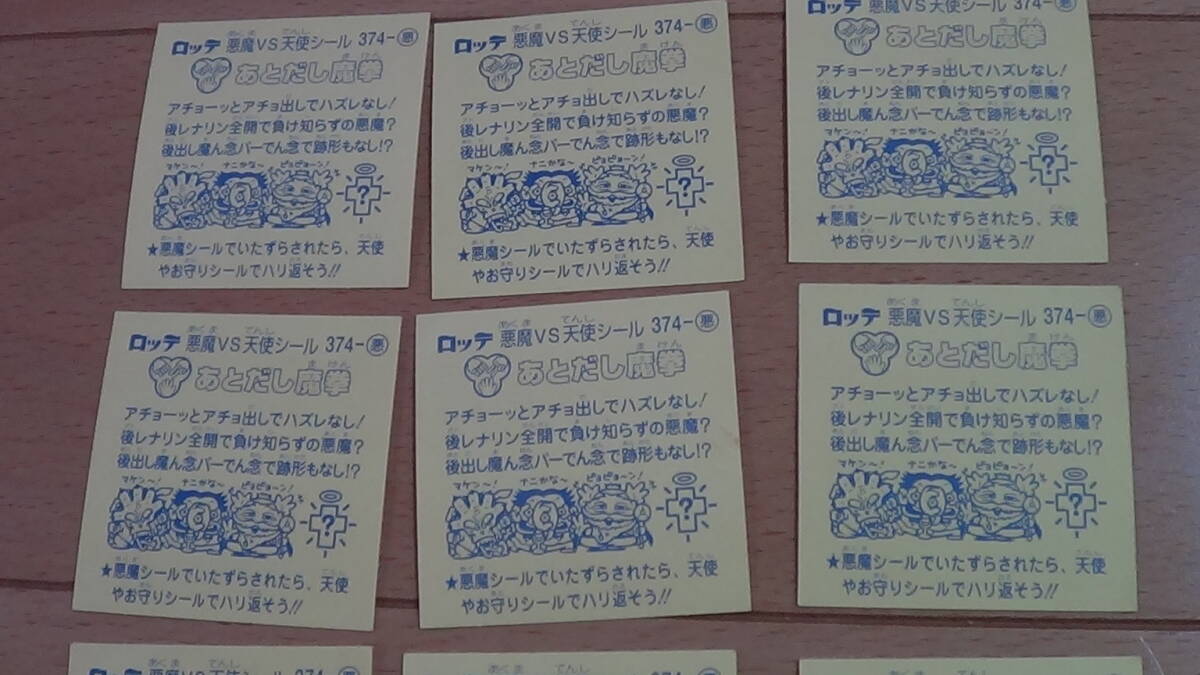 ロッテ 悪魔VS天使シール 374-悪
あとだし魔拳
アチョーッとアチョ出しでハズレなし!
後レナリン全開で負け知らずの悪魔?
後出し魔ん念パーでん念で跡形もなし!?
マケン〜! ナニかな〜 ピョピョーン!
?
★悪魔シールでいたずらされたら、天使
やお守りシールでハリ返そう!!
ロッテ 悪魔VS天使シール 374-悪
あとだし魔拳
アチョーッとアチョ出しでハズレなし!
後レナリン全開で負け知らずの悪魔?
後出し魔ん念パーでん念で跡形もなし!?
マケン〜! ナニかな〜 ピョピョーン!
?
★悪魔シールでいたずらされたら、天使
やお守りシールでハリ返そう!!
ロッテ 悪魔VS天使シール 374-悪
あとだし魔拳
アチョーッとアチョ出しでハズレなし!
後レナリン全開で負け知らずの悪魔?
後出し魔ん念パーでん念で跡形もなし!?
マケン〜! ナニかな〜 ピョピョーン!
?
★悪魔シールでいたずらされたら、天使
やお守りシールでハリ返そう!!
ロッテ 悪魔VS天使シール 374-悪
あとだし魔拳
アチョーッとアチョ出しでハズレなし!
後レナリン全開で負け知らずの悪魔?
後出し魔ん念パーでん念で跡形もなし!?
マケン〜! ナニかな〜 ピョピョーン!
?
★悪魔シールでいたずらされたら、天使
やお守りシールでハリ返そう!!
ロッテ 悪魔VS天使シール 374-悪
あとだし魔拳
アチョーッとアチョ出しでハズレなし!
後レナリン全開で負け知らずの悪魔?
後出し魔ん念パーでん念で跡形もなし!?
マケン〜! ナニかな〜 ピョピョーン!
?
★悪魔シールでいたずらされたら、天使
やお守りシールでハリ返そう!!
ロッテ 悪魔VS天使シール 374-悪
あとだし魔拳
アチョーッとアチョ出しでハズレなし!
後レナリン全開で負け知らずの悪魔?
後出し魔ん念パーでん念で跡形もなし!?
マケン〜! ナニかな〜 ピョピョーン!
?
★悪魔シールでいたずらされたら、天使
やお守りシールでハリ返そう!!
ロッテ 悪魔VS天使シール 374-悪